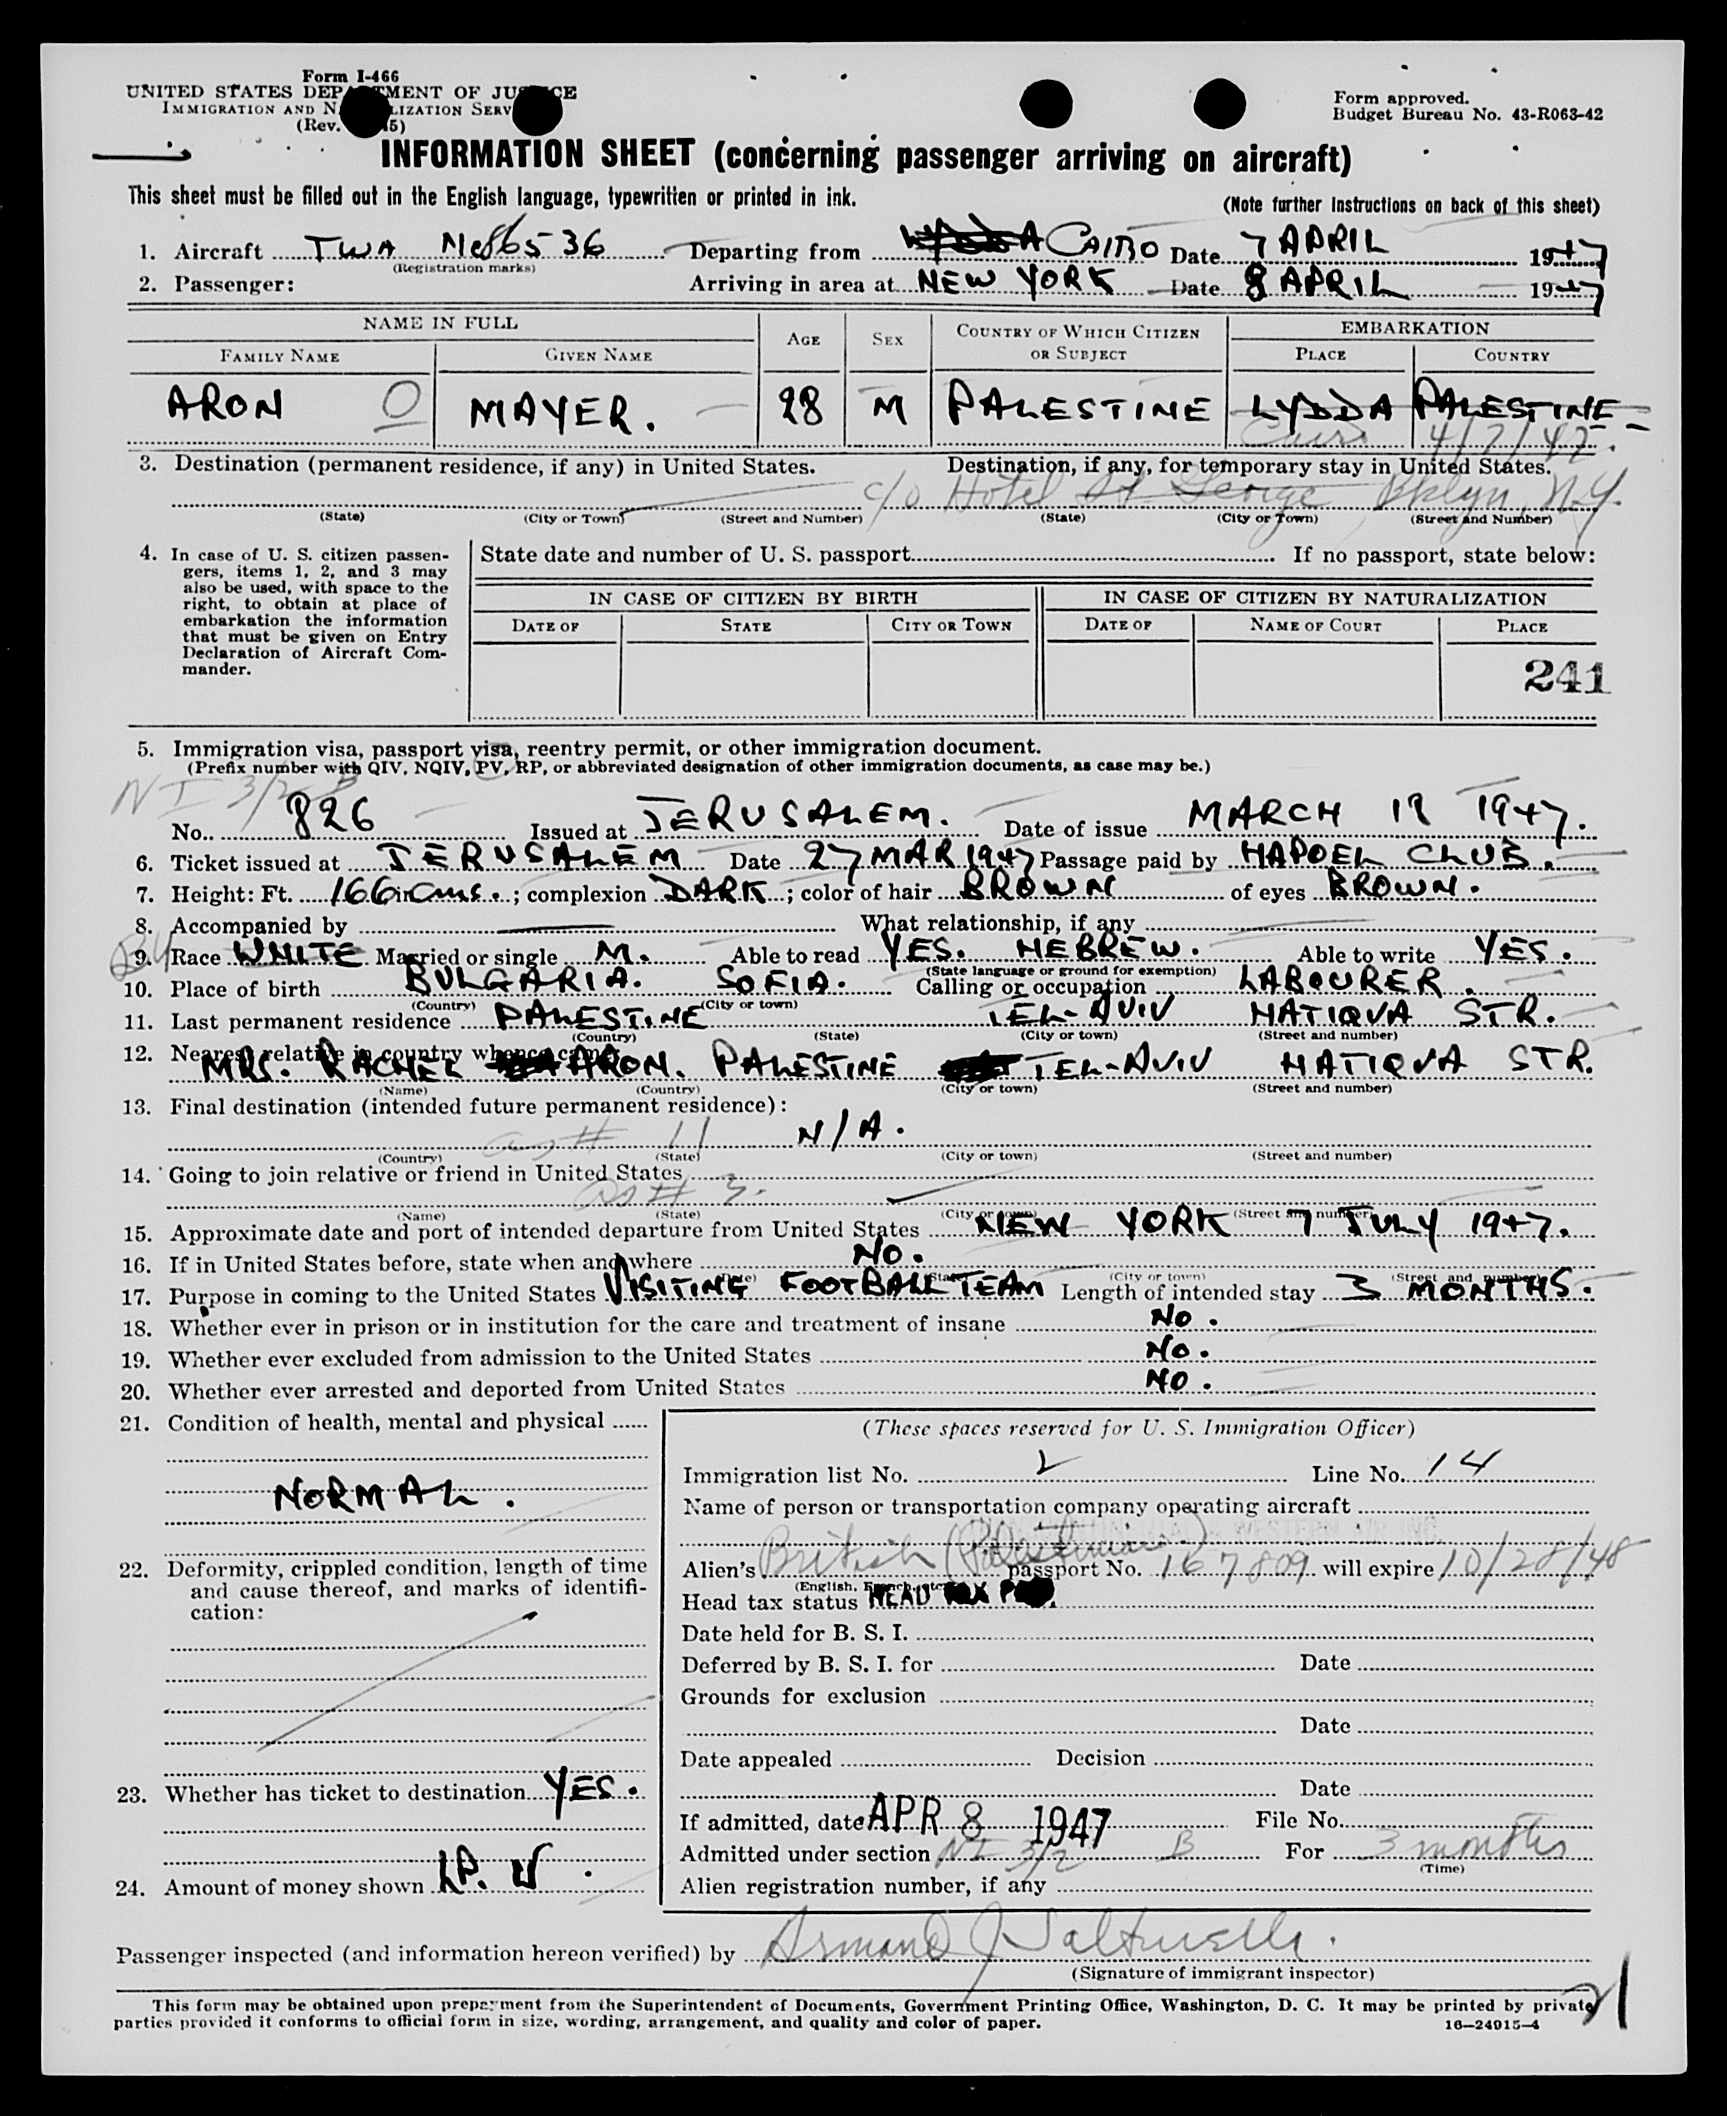 Form I-466
UNITED STATES DEPARTMENT OF JUSTICE
IMMIGRATION AND NATURALIZATION SERVICE
(Rev. 45)
Form approved.
Budget Bureau No. 43-R063-42
INFORMATION SHEET (concerning passenger arriving on aircraft)
This sheet must be filled out in the English language, typewritten or printed in ink.
(Note further instructions on back of this sheet)
1. Aircraft TWA Nc86536 Departing from CAIRO Date 7 APRIL 1947
(Registration marks)
2. Passenger: Arriving in area at NEW YORK Date 8 APRIL 1947
NAME IN FULL AGE SEX COUNTRY OF WHICH CITIZEN OR SUBJECT EMBARKATION
FAMILY NAME GIVEN NAME PLACE COUNTRY
ARON O MAYER. 28 M PALESTINE LYDDA PALESTINE
Cairo 4/7/47.
3. Destination (permanent residence, if any) in United States. Destination, if any, for temporary stay in United States.
c/o Hotel St George Bklyn, N.Y.
(State) (City or Town) (Street and Number) (State) (City or Town) (Street and Number)
4. In case of U. S. citizen passen-
gers, items 1, 2, and 3 may
also be used, with space to the
right, to obtain at place of
embarkation the information
that must be given on Entry
Declaration of Aircraft Com-
mander.
State date and number of U. S. passport If no passport, state below:
IN CASE OF CITIZEN BY BIRTH IN CASE OF CITIZEN BY NATURALIZATION
DATE OF STATE CITY OR TOWN DATE OF NAME OF COURT PLACE
241
5. Immigration visa, passport visa, reentry permit, or other immigration document.
(Prefix number with QIV, NQIV, PV, RP, or abbreviated designation of other immigration documents, as case may be.)
NI 3/2 B
No. 826 Issued at JERUSALEM. Date of issue MARCH 18 1947.
6. Ticket issued at JERUSALEM Date 27 MAR 1947 Passage paid by HAPOEL CLUB.
7. Height: Ft. 166 in Cms.; complexion DARK; color of hair BROWN of eyes BROWN.
8. Accompanied by What relationship, if any
9. Race WHITE Married or single M. Able to read YES. HEBREW. Able to write YES.
(State language or ground for exemption)
10. Place of birth BULGARIA. SOFIA. Calling or occupation LABOURER.
(Country) (City or town)
11. Last permanent residence PALESTINE TEL-AVIV HATIQVA STR.
(Country) (State) (City or town) (Street and number)
12. Nearest relative in country whence came
MRS. RACHEL ARON. PALESTINE TEL-AVIV HATIQVA STR.
(Name) (Country) (City or town) (Street and number)
13. Final destination (intended future permanent residence):
as # 11 N/A.
(Country) (State) (City or town) (Street and number)
14. Going to join relative or friend in United States
as # 3.
(Name) (State) (City or town) (Street and number)
15. Approximate date and port of intended departure from United States NEW YORK 7 JULY 1947.
16. If in United States before, state when and where NO.
(Date) (State) (City or town) (Street and number)
17. Purpose in coming to the United States VISITING FOOTBALL TEAM Length of intended stay 3 MONTHS.
18. Whether ever in prison or in institution for the care and treatment of insane No.
19. Whether ever excluded from admission to the United States No.
20. Whether ever arrested and deported from United States NO.
21. Condition of health, mental and physical
NORMAL.
22. Deformity, crippled condition, length of time
and cause thereof, and marks of identifi-
cation:
23. Whether has ticket to destination YES.
24. Amount of money shown LP.
(These spaces reserved for U. S. Immigration Officer)
Immigration list No. 2 Line No. 14
Name of person or transportation company operating aircraft
Alien's British (Palestinian) passport No. 167809 will expire 10/28/48
(English, French, etc.)
Head tax status HEAD TAX
Date held for B. S. I.
Deferred by B. S. I. for Date
Grounds for exclusion
Date
Date appealed Decision
Date
If admitted, date APR 8 1947 File No.
Admitted under section NI 3/2 B For 3 months
(Time)
Alien registration number, if any
Passenger inspected (and information hereon verified) by Armand J
(Signature of immigrant inspector)
This form may be obtained upon prepayment from the Superintendent of Documents, Government Printing Office, Washington, D. C. It may be printed by private
parties provided it conforms to official form in size, wording, arrangement, and quality and color of paper.
16—24915-4